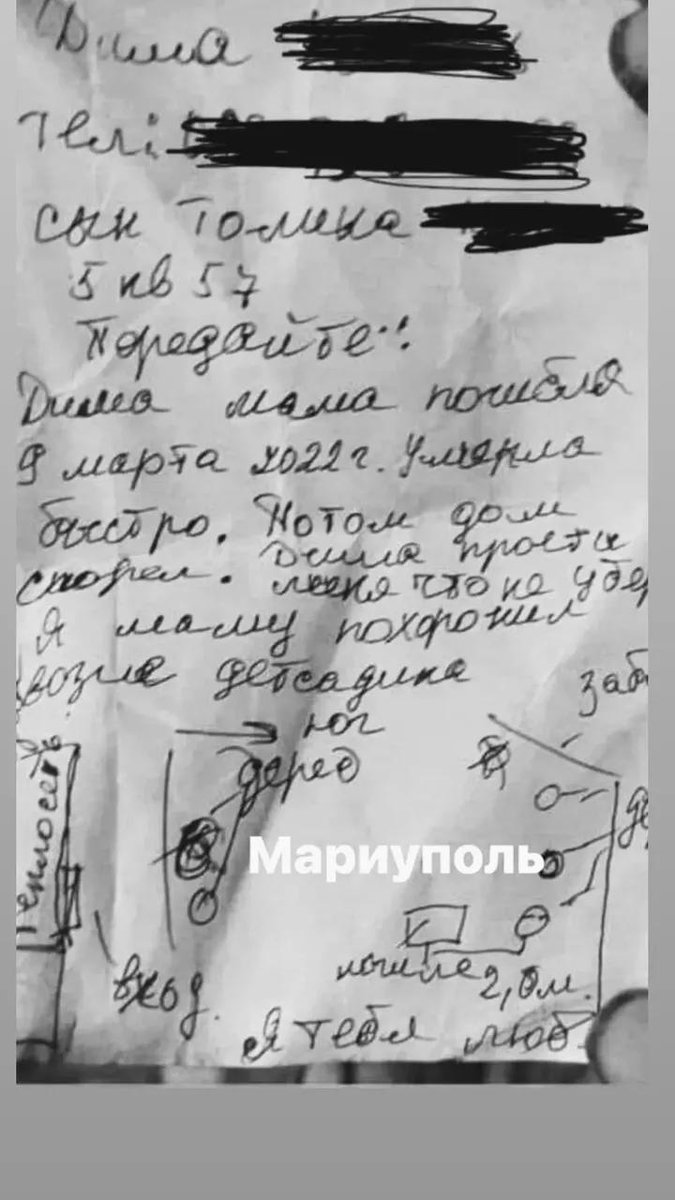 Дима
Тел:
сын Толика
5 кв 57
Передайте!!
Дима мама погибла
9 марта 2022 г. Умерла
быстро. Потом дом
сгорел. Дима прости
меня что не убер
Я маму похоронил
возле детсадика
юг
заб
дерев
Теплосеть
Мариуполь
вход
могила 2,0м.
Я тебя люб